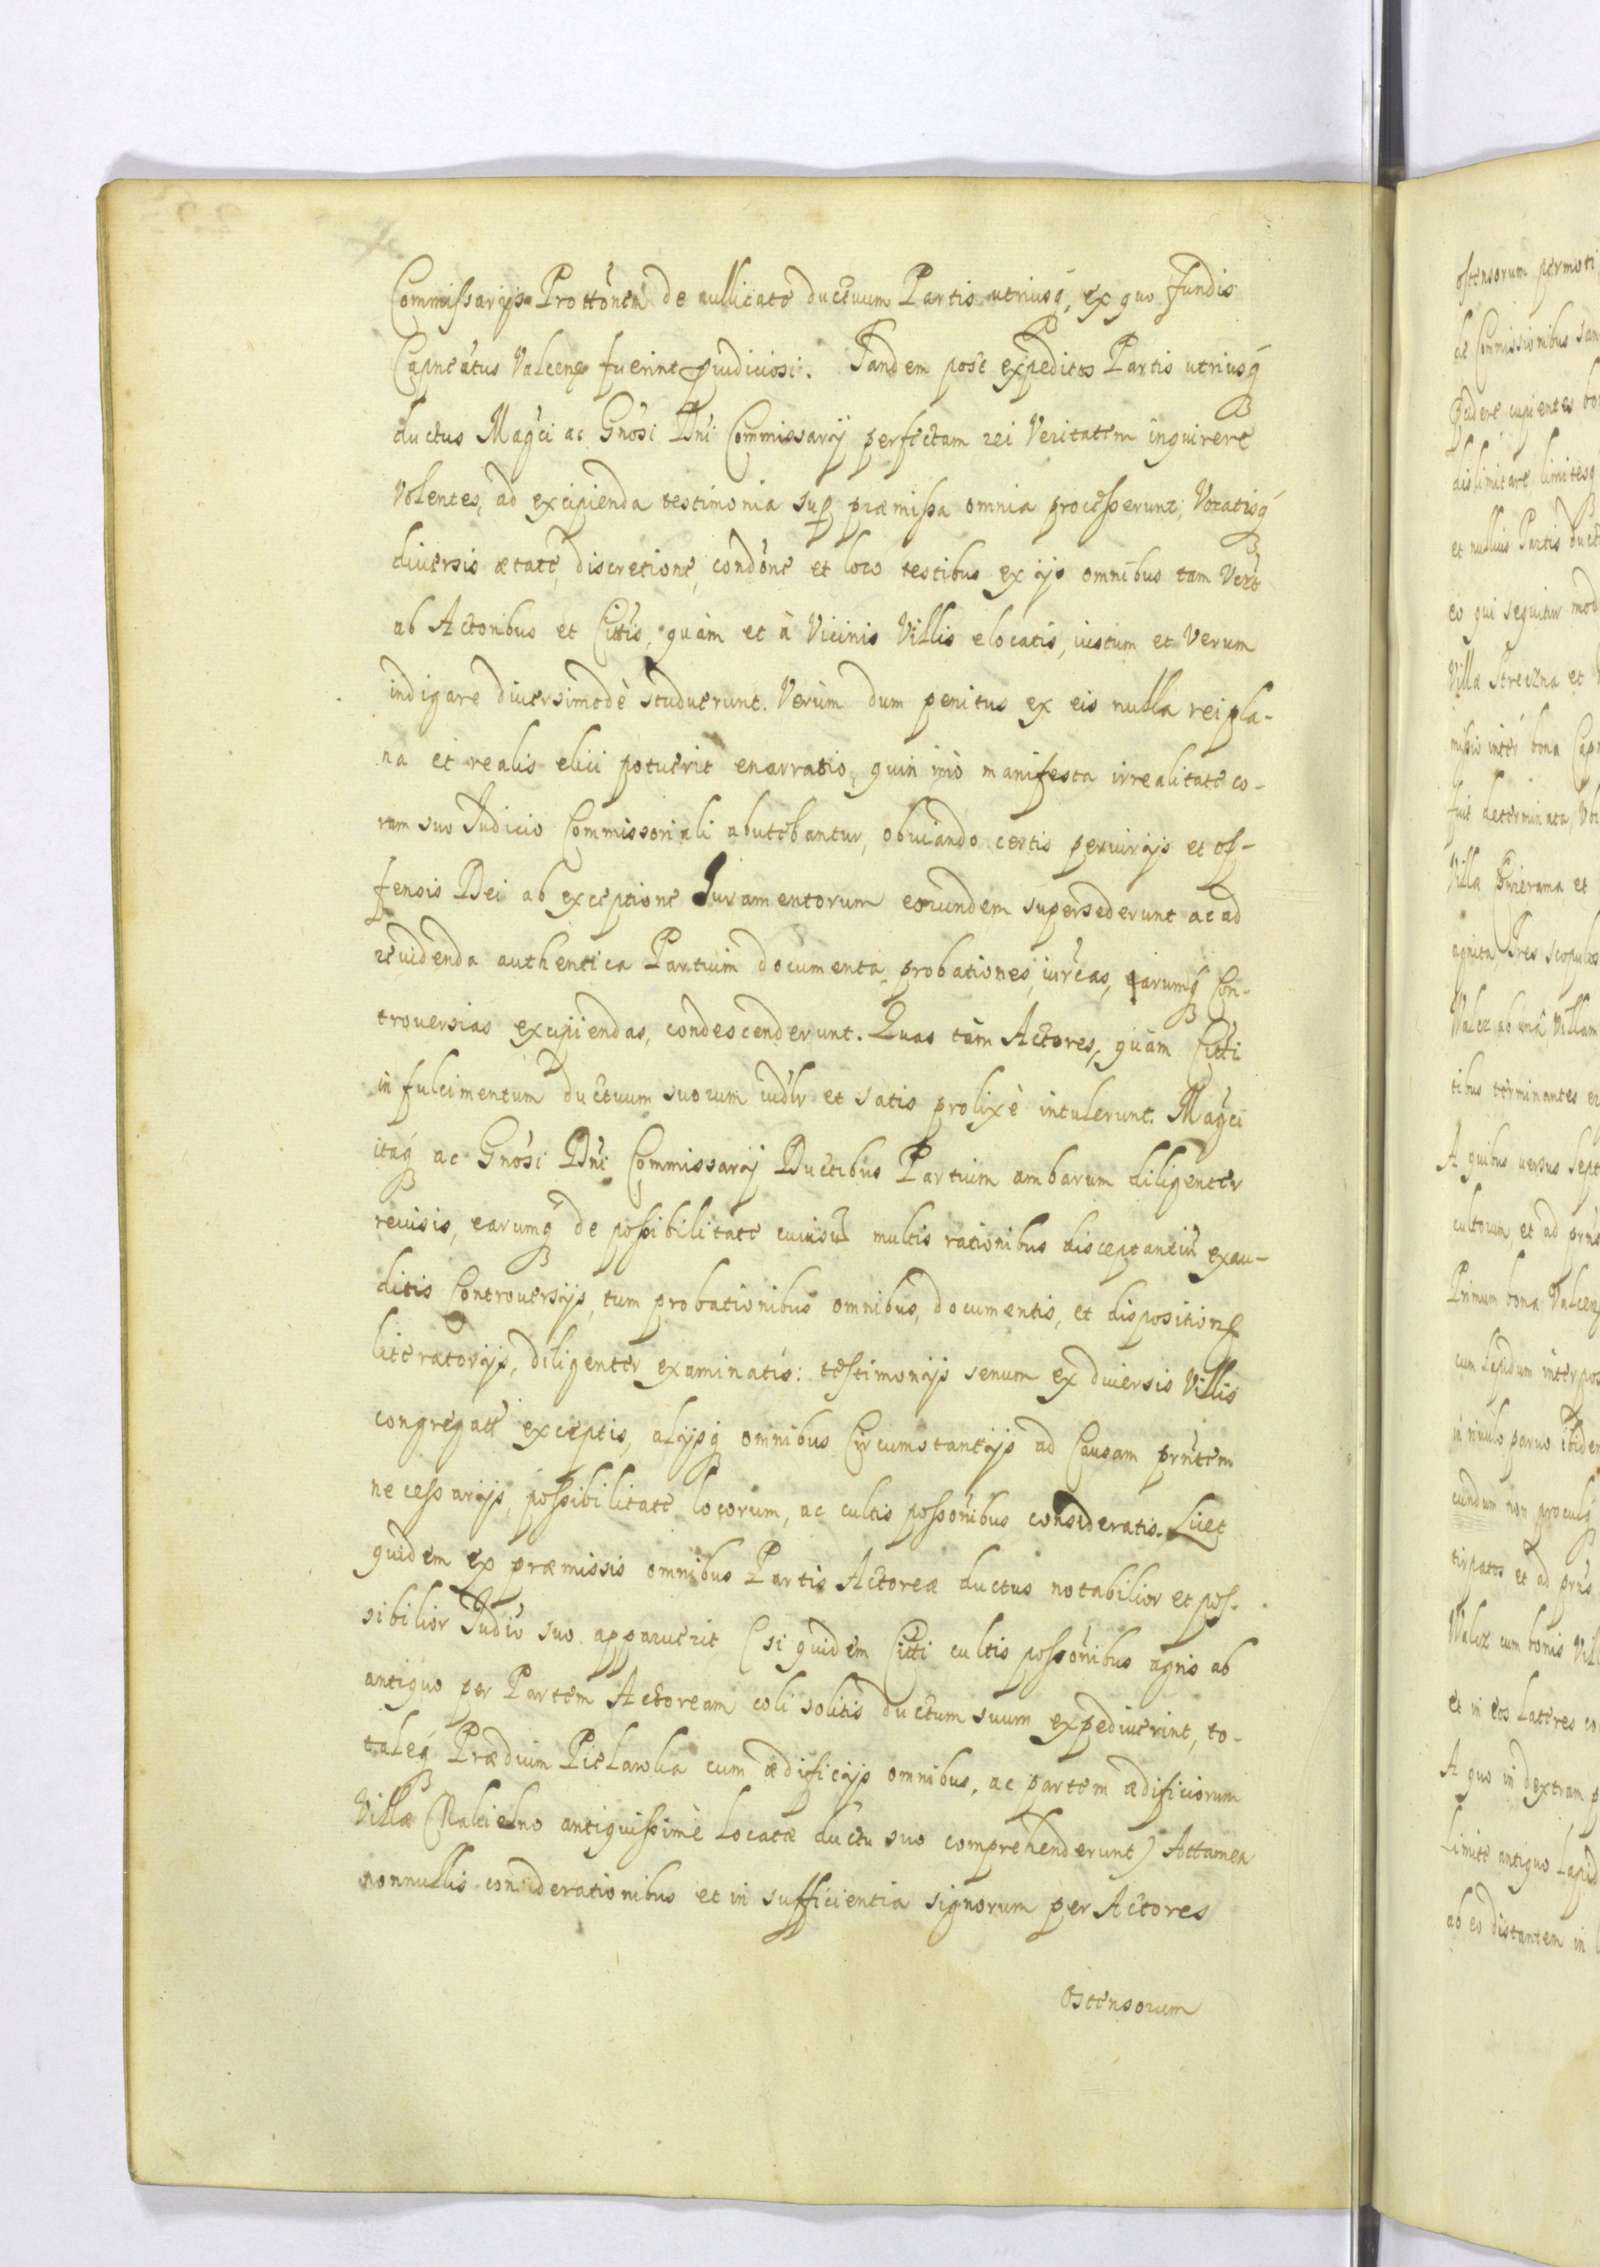 Commissarijs Prottõnem de nullitate ductuum Partis utriusq́, ex quo fundis
Capneatus Valcens fuerint pṛiudiciosi. Tandem post expeditos Partis utriusq́
ductus Magci ac Gnosi Dni Commissarij perfectam rei Veritatem inquirere
Volentes, ad excipienda testimonia sup præmissa omnia processerunt, Vocatisq́
diversis ætate, discretione, condõne et loco testibus ex ijs omnibus tam
ab Actoribus et Cittis, quàm et à Vicinis Villis elocatis, iustum et Verum
indigare diversimodè studuerunt. Verùm dum penitus ex eis nulla rei pla-
na et realis elici potuerit enarratio, quin imò manifesta irrealitate co-
ram suo Judicio Commissoriali abutebantur, obviando certis periurijs et of-
fensis Dei ab exceptione Juramentorum eorundem supersederunt ac ad
revidenda authentica Partium documenta, probationes, iureas, earumq́ Con-
troversias excipiendas, condescenderunt. Quas tàm Actores, quàm Citti
in fulcimentum ductuum suorum et satis prolixè intulerunt. Magci
itaq́ ac Gnosi Dni Commissarij Ductibus Partium ambarum diligenter
revisis, earumq́ de possibilitate cuiusvis multis rationibus disceptantiũ exau-
ditis Controversijs, tum probationibus omnibus, documentis, et
literatorijs, diligenter examinatis: testimonijs senum ex diversis Villis
congregatt exceptis, alijsq́ omnibus Circumstantijs ad Causam prñtem
necessarijs, possibilitate locorum, ac cultis possõnibus consideratis. Licet
quidem ex præmissis omnibus Partis Actoreæ ductus notabilior et pos-
sibilior Judio suo apparuerit (siquidem Citti cultis possõnibus agris ab
antiquo per Partem Actoream coli solitis ductum suum expediverint, to-
taleq́ Prædium Pielawka cum ædificijs omnibus, ac partem ædificiorum
Villæ antiquissimè Locatæ ductu suo comprehenderunt) Attamen
nonnullis considerationibus et in sufficientia signorum per Actores
ostensorum
ostensorum permoti
de Commissionibus
cupientes
dislimitare limitesq́
et nullius Partis
eo qui sequitur
Villa et
inter bona
fuit determinata,
Villa et
agnita Tres scopulos
ab unâ Villam
tibus terminantes
A quibus versus
cultorum, et ad
Primum bona
cum
in parvo
cundum non procul
et ad
cum bonis
et in eos Lateres
A quo in dextram
Limite antiquo
ab eo distantem in